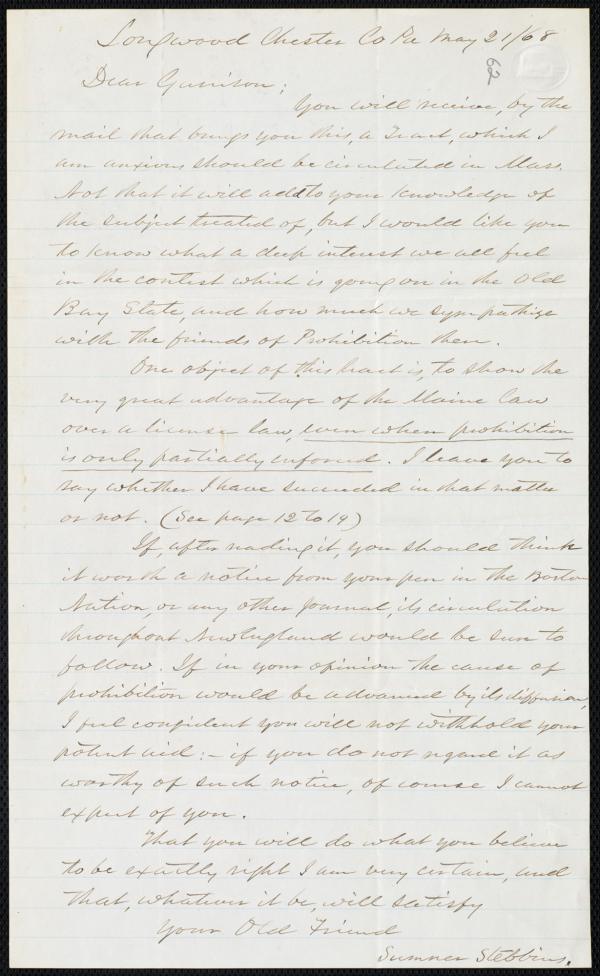 Longwood Chester Co Pa May 21/68
62
Dear Garrison;
You will receive, by the
mail that brings you this, a Tract, which I
am anxious should be circulated in Mass.
Not that it will add to your knowledge of
the subject treated of, but I would like you
to know what a deep interest we all feel
in the contest which is going on in the Old
Bay State, and how much we sympathize
with the friends of Prohibition there.
One object of this tract is, to show the
very great advantage of the Maine Law
over a license law, even when prohibition
is only partially enforced. I leave you to
say whether I have succeeded in that matter
or not. (See page 12 to 19)
If, after reading it, you should think
it worth a notice from your pen in the Boston
Nation, or any other Journal, its circulation
throughout New England would be sure to
follow. If in your opinion the cause of
prohibition would be advanced by its diffusion,
I feel confident you will not withhold your
potent aid:- if you do not regard it as
worthy of such notice, of course I cannot
expect of you.
That you will do what you believe
to be exactly right I am very certain, and
that, whatever it be, will satisfy
Your Old Friend
Sumner Stebbins.